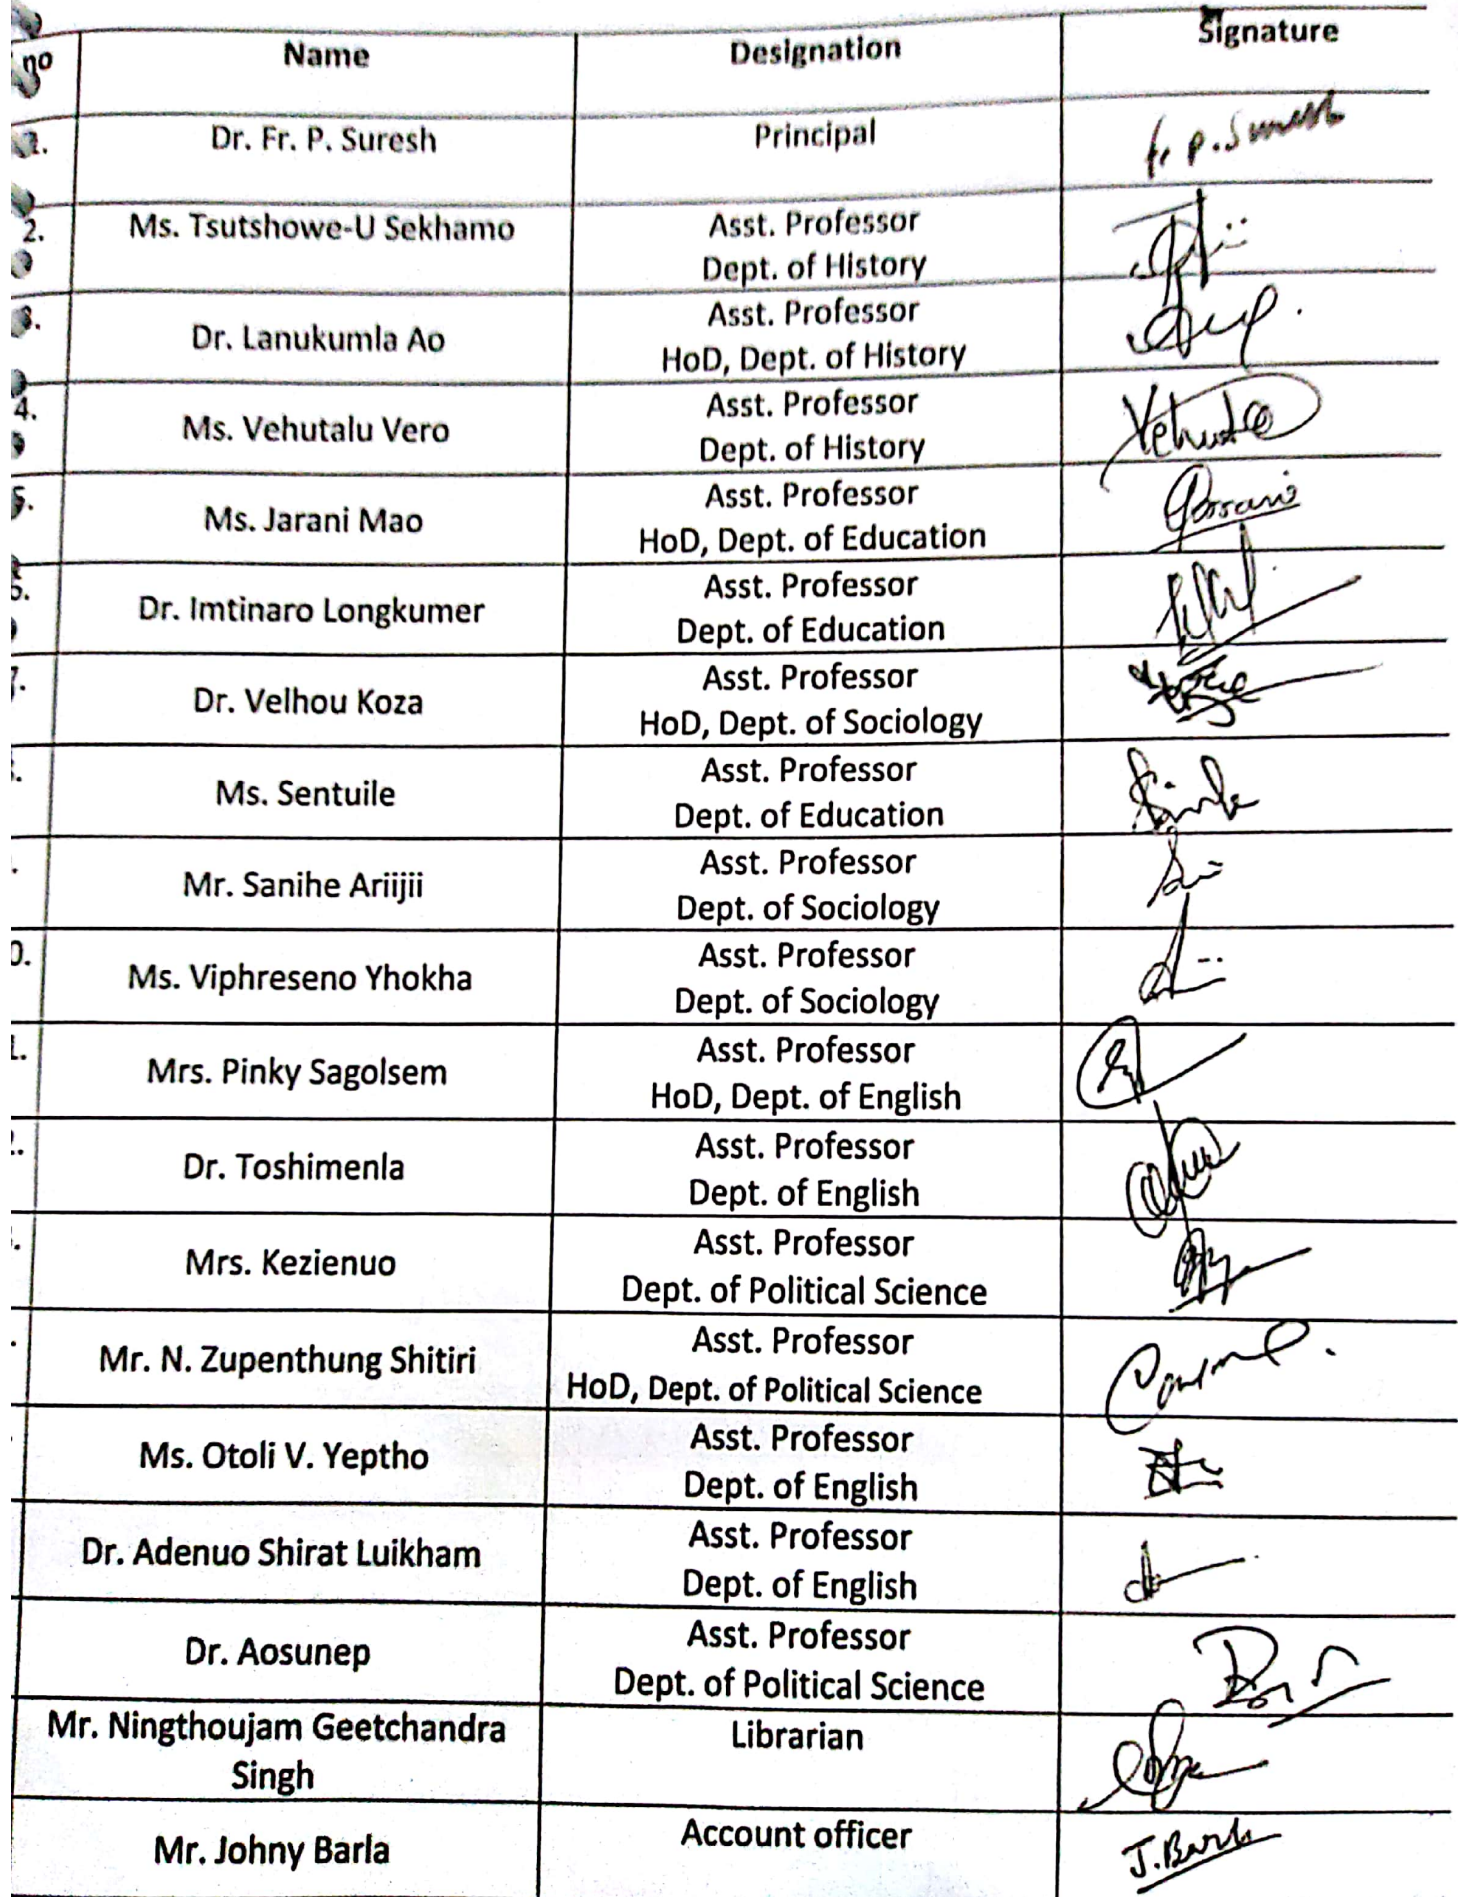 no Name Designation Signature
1. Dr. Fr. P. Suresh Principal fr P. Suresh
2. Ms. Tsutshowe-U Sekhamo Asst. Professor
Dept. of History
3. Dr. Lanukumla Ao Asst. Professor
HoD, Dept. of History
4. Ms. Vehutalu Vero Asst. Professor
Dept. of History
5. Ms. Jarani Mao Asst. Professor
HoD, Dept. of Education
6. Dr. Imtinaro Longkumer Asst. Professor
Dept. of Education
7. Dr. Velhou Koza Asst. Professor
HoD, Dept. of Sociology
Ms. Sentuile Asst. Professor
Dept. of Education
Mr. Sanihe Ariijii Asst. Professor
Dept. of Sociology
0. Ms. Viphreseno Yhokha Asst. Professor
Dept. of Sociology
Mrs. Pinky Sagolsem Asst. Professor
HoD, Dept. of English
Dr. Toshimenla Asst. Professor
Dept. of English
Mrs. Kezienuo Asst. Professor
Dept. of Political Science
Mr. N. Zupenthung Shitiri Asst. Professor
HoD, Dept. of Political Science
Ms. Otoli V. Yeptho Asst. Professor
Dept. of English
Dr. Adenuo Shirat Luikham Asst. Professor
Dept. of English
Dr. Aosunep Asst. Professor
Dept. of Political Science
Mr. Ningthoujam Geetchandra Librarian
Singh
Mr. Johny Barla Account officer J. Barla